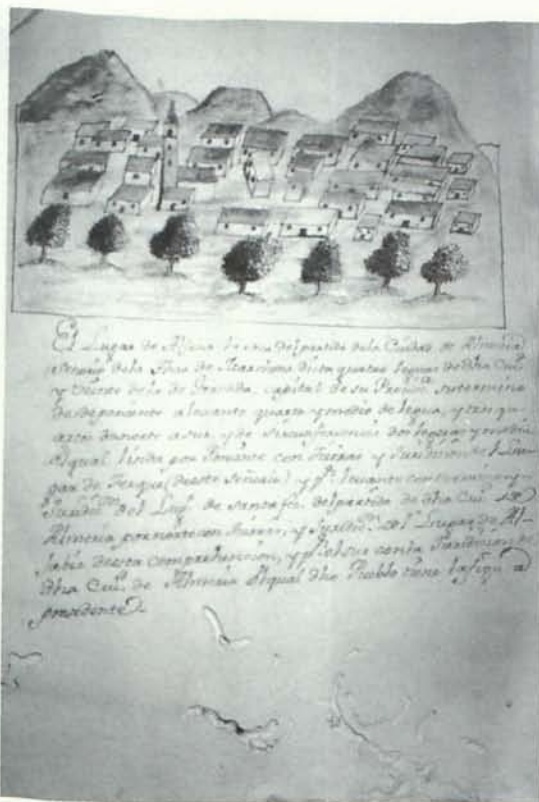 El Lugar de Alsodux es uno del partido dela Ciudad de Almería
dela de dista quatro leguas de dha Ciud.
y veinte dela de Granada, capital de su Provin.ª su termino
de deponiente alevante quarta y media de legua, y tres qu-
artos denorte a sur, y de circunferencia dos leguas y media
elqual linda por Poniente con y Jurisdicion del Lu-
gar de (deeste Señorio) y p.r levante con termino y-
Jurisd.on del Lug.r de Santa fee, delpartido de dha Ciu.d de
Almeria pornorte con y del Lugar de Al-
sabia deesta comprehension, y p.r elsur conla Jurisdicion de
dha Ciu.d de Almeria elqual dho Pueblo tiene lafigu.ª
presedente.